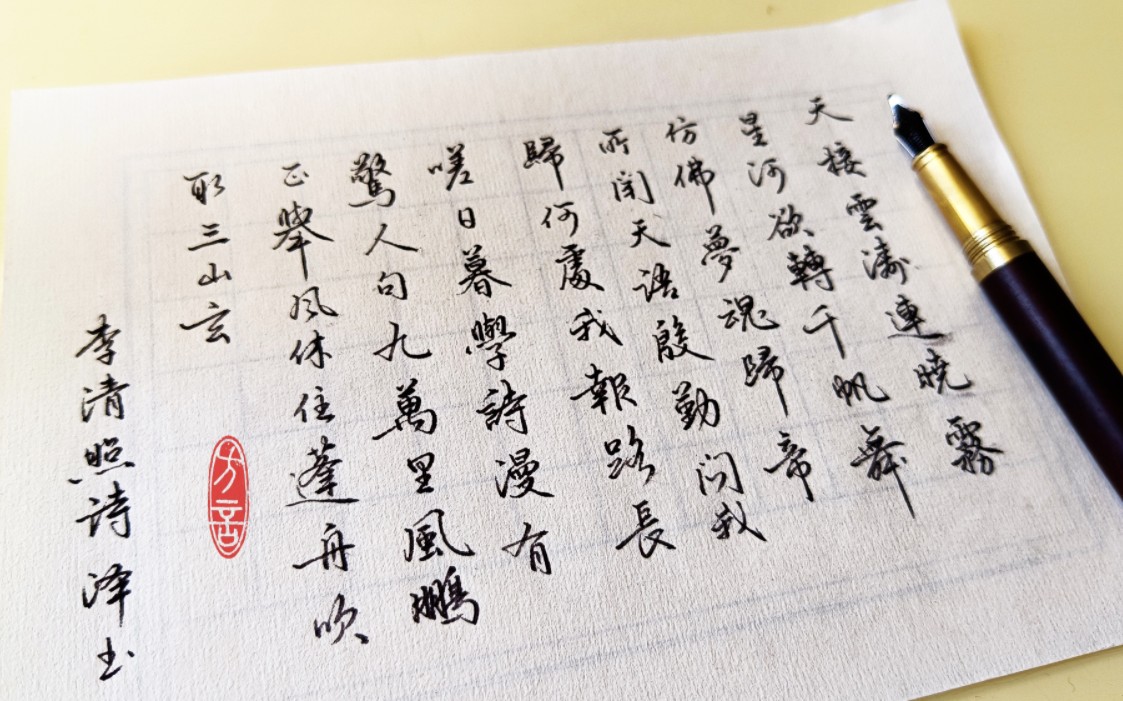 天接雲濤連曉霧
星河欲轉千帆舞
仿佛夢魂歸帝
所闻天语殷勤问我
歸何處我報路長
嗟日暮學詩漫有
驚人句九萬里風鵬
正舉風休住蓬舟吹
取三山去
李清照诗 泽书
方言